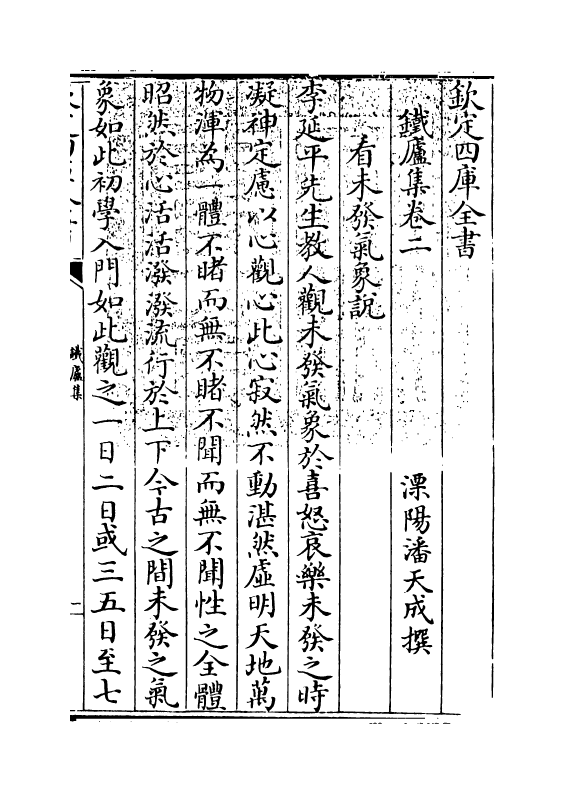 欽定四庫全書
鐵廬集卷二
溧陽潘天成撰
看未發氣象説
李延平先生教人觀未發氣象於喜怒哀樂未發之時
凝神定慮以心觀心此心寂然不動湛然虛明天地萬
物渾為一體不睹而無不睹不聞而無不聞性之全體
昭然於心活活潑潑流行於上下今古之間未發之氣
象如此初學入門如此觀之一日二日或三五日至七
鐵廬集
二